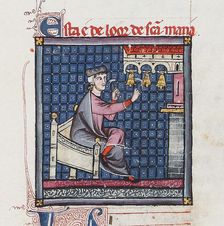 Esta é de loor de scã maria